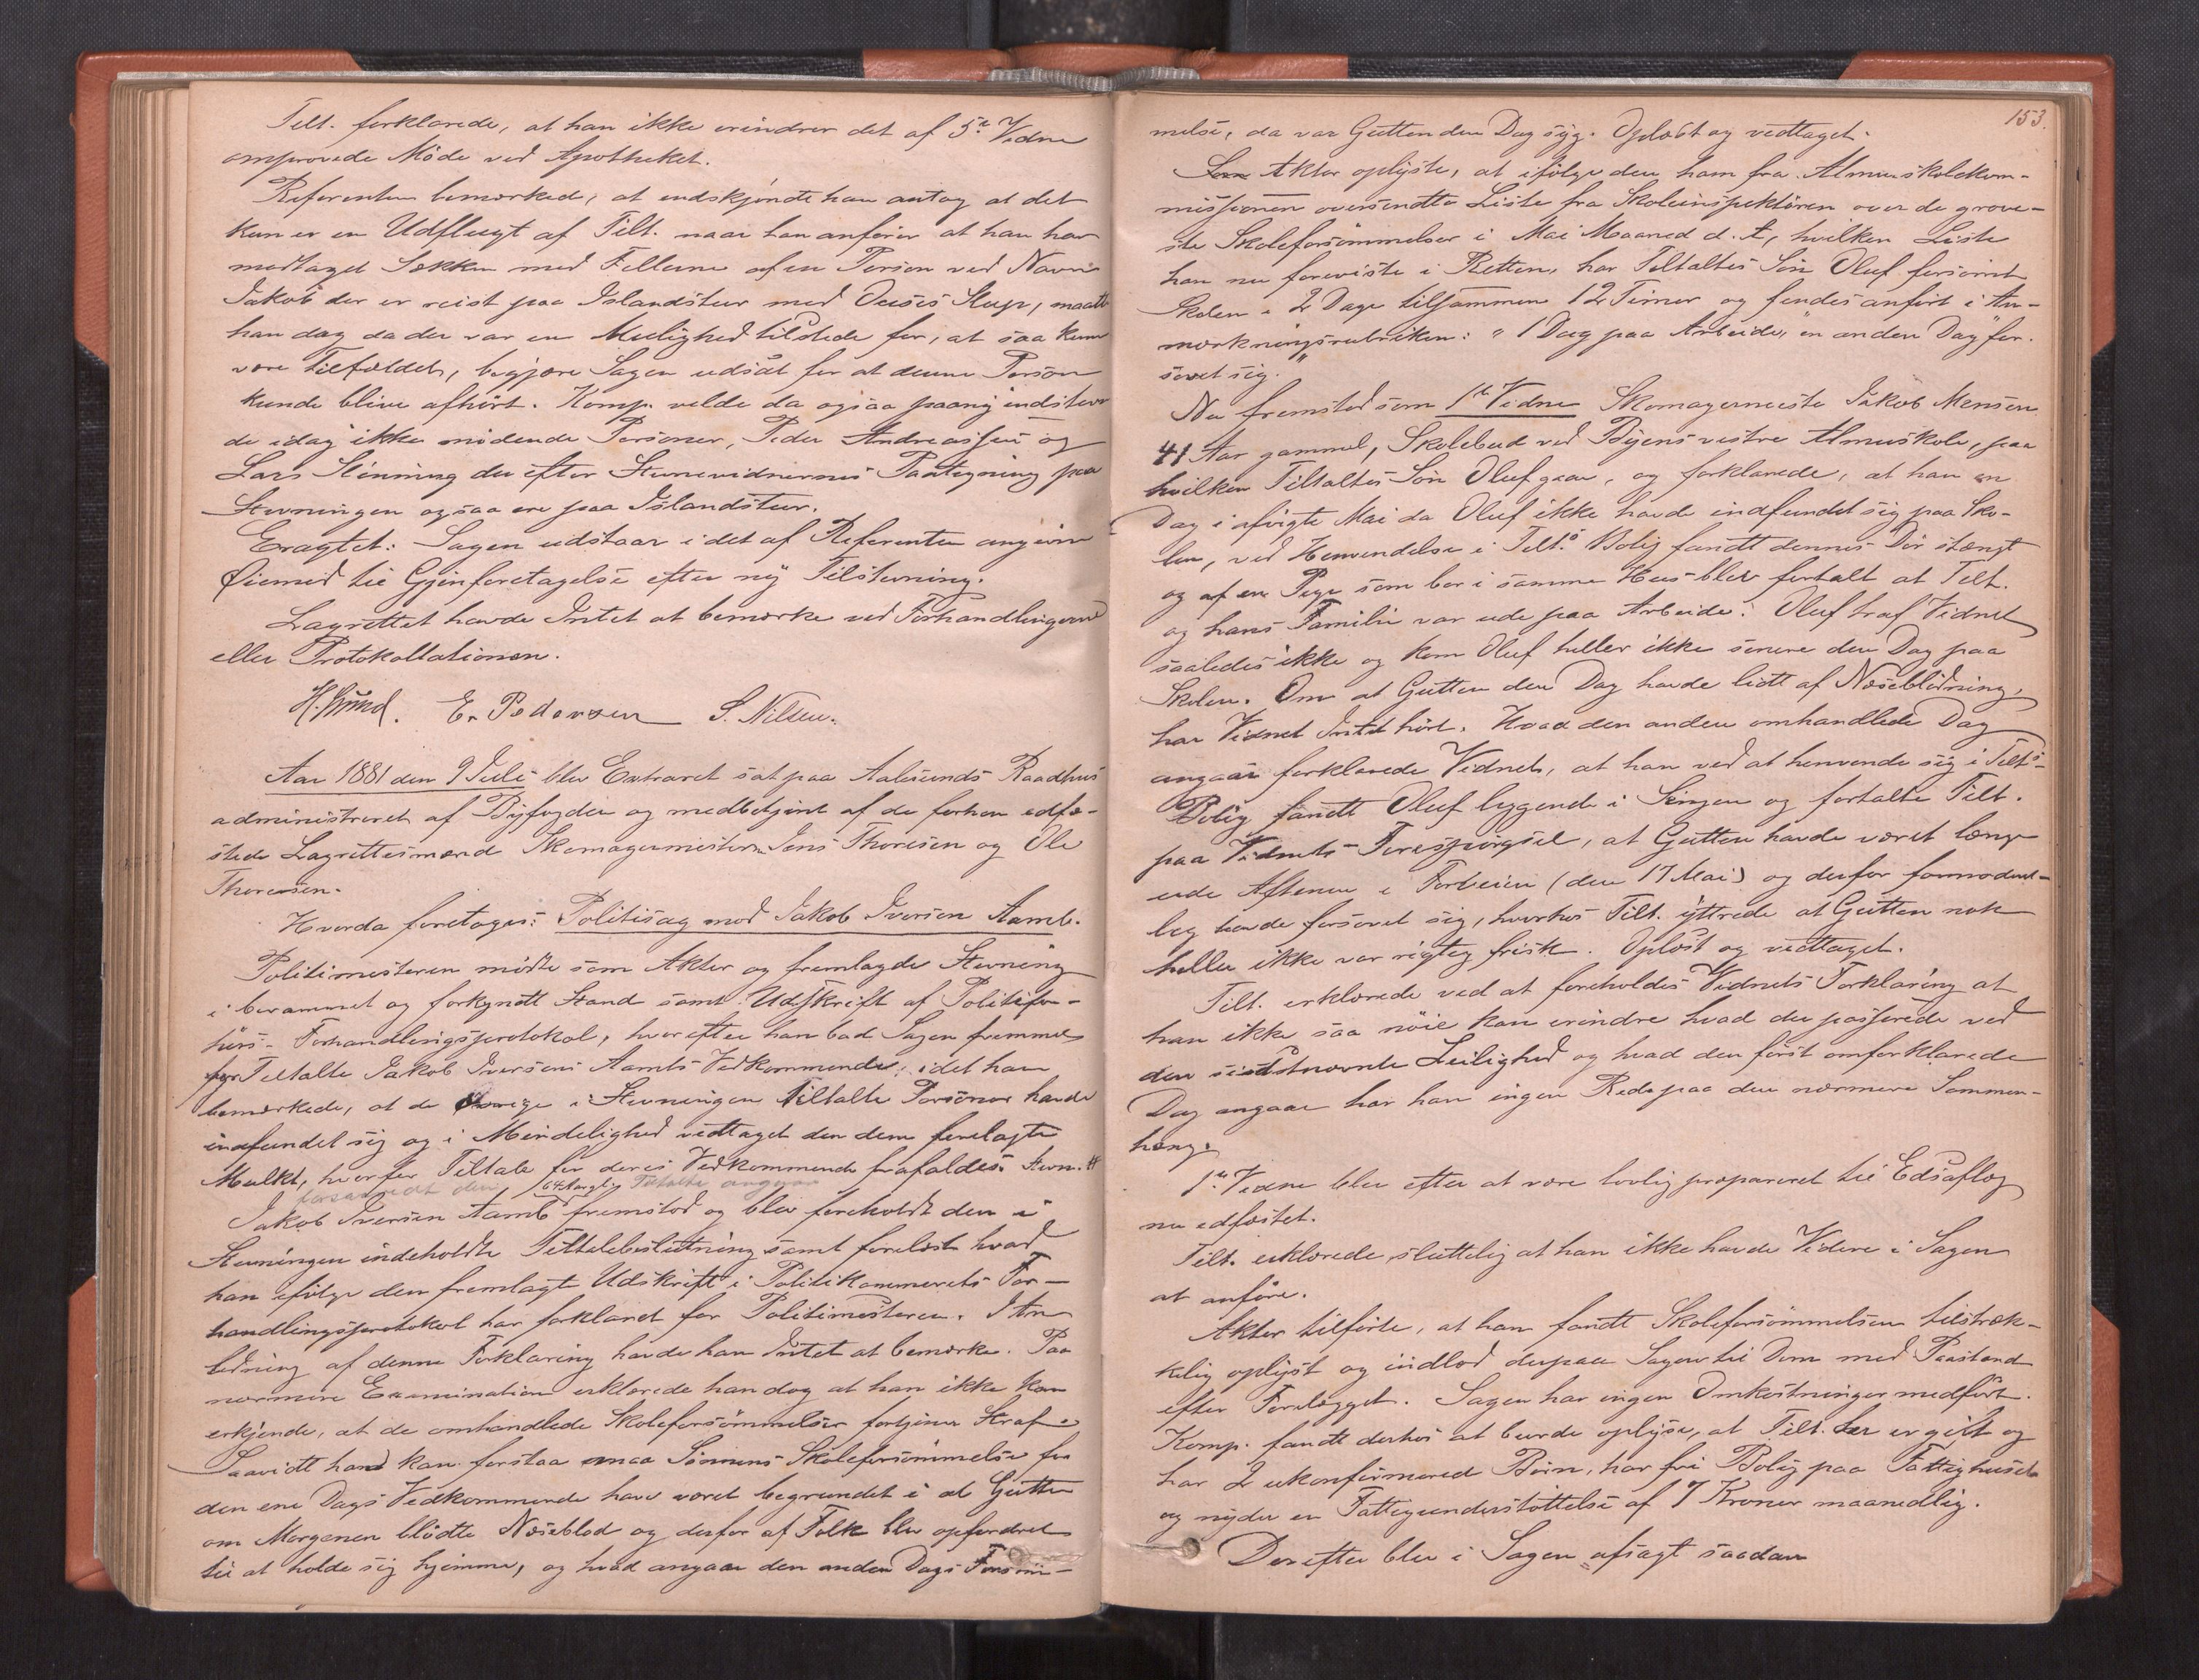 Tilt. forklarede, at han ikke erindrer det af 5te Vidne
omprovede Møde ved Apotheket.
Referenten bemærked, at endskjøndt han antog at det
kun er en Udflugt af Tilt. naar han anfører at han har
modtaget Sækken med Fellerne af en Person ved Navn
Jakob der er reist paa Islandstur med Slup, maatte
han dog da der var en Mulighed tilstede for, at saa kunde
være Tilfældet, begjære Sagen udsat for at denne Person
kunde blive afhørt. Komp. vilde da ogsaa paany indstevne
de idag ikke mødende Personer, Peder Andreassen og
Lars Slinning der efter Stevnevidnernes Paategning paa
Stevningen ogsaa ere paa Islandstur.
Eragtet: Sagen udstaar i det af Referenten angivne
Øiemed til Gjenforetagelse efter ny Tilstevning.
Lagrettet havde Intet at bemærke ved Forhandlingerne
eller Protokollationen.
E. Pedersen S. Nilsen.
Aar 1881 den 9 Juli blev Extraret sat paa Aalesunds Raadhus
administreret af Byfogden og medbetjent af de forhen edfæ-
stede Lagrettesmænd Skomagermestern Jens Thoresen og Ole
Thoresen.
Hvorda foretoges: Politisag mod Jakob Iversen Aamb.
Politimesteren mødte som Aktor og fremlagde Stevning
i berammet og forkyndt Stand samt Udskrift af Politifor-
hørs- Forhandlingsprotokol, hvorefter han bad Sagen fremmet
for Tiltalte Jakob Iversens Aambs Vedkommende, idet han
bemærkede, at de øvrige i Stevningen tiltalte Personer havde
indfundet sig og i Mindelighed vedtaget den dem forelagte
Mulkt, hvorfor Tiltale for deres Vedkommende frafaldes.
forsaavidt den Tiltalte angaar
Jakob Iversen Aamb fremstod og blev foreholdt den i
Stevningen indeholdte Tiltalebeslutning samt forelæst hvad
han ifølge den fremlagte Udskrift i Politikammerets For-
handlingsprotokol har forklaret for Politimesteren. I An-
ledning af denne Forklaring havde han Intet at bemærke. Paa
nærmere Examination erklærede han dog at han ikke kan
erkjende, at de omhandlede Skoleforsømmelser fortjener Straf.
Saavidt han kan forstaa maa Sønnens Skoleforsømmelse for
den ene Dags Vedkommende have været begrundet i at Gutten
om Morgenen blødte Næseblod og derfor af Folk blev opfordret
til at holde sig hjemme, og hvad angaar den anden Dags Forsøm-
153.
melse, da var Gutten den Dag syg. Oplæst og vedtaget.
Aktor oplyste, at ifølge den ham fra Almueskolekom-
missionen oversendte Liste fra Skoleinspektøren over de grove-
ste Skoleforsømmelser i Mai Maaned d. A, hvilken Liste
han nu foreviste i Retten, har Tiltaltes Søn Oluf forsømt
Skolen i 2 Dage tilsammen 12 Timer og findes anført i An-
mærkningsrubriken: "1 Dag paa Arbeide, en anden Dag" for-
sovet sig."
Nu fremstod som 1ste Vidne Skomagermester Jakob Monsen
41 Aar gammel, Skolebud ved Byens vestre Almueskole, paa
hvilken Tiltaltes Søn Oluf gaar, og forklarede, at han en
Dag i afvigte Mai da Oluf ikke havde indfundet sig paa Sko-
len, ved Henvendelse i Tilts Bolig fandt dennes Dør stængt
og af en Pige som bor i samme Hus blev fortalt at Tilt.
og hans Familie var ude paa Arbeide. Oluf traf Vidnet
saaledes ikke og kom Oluf heller ikke senere den Dag paa
Skolen. Om at Gutten den Dag havde lidt af Næseblødning,
har Vidnet Intet hørt. Hvad den anden omhandlede Dag
angaar forklarede Vidnet, at han ved at henvende sig i Tilts
Bolig fandt Oluf liggende i Sengen og fortalte Tilt.
paa Vidnets Forespørgsel, at Gutten havde været længe
ude Aftenen i Forveien (den 17 Mai) og derfor formodent-
lig havde forsovet sig, hvorhos Tilt. yttrede at Gutten nok
heller ikke var rigtig frisk. Oplæst og vedtaget.
Tilt. erklærede ved at foreholdes Vidnets Forklaring at
han ikke saa nøie kan erindre hvad der passerede ved
den sidstnævnte Leilighed og hvad den først omforklarede
Dag angaar har han ingen Rede paa den nærmere Sammen-
hæng.
1ste Vidne blev efter at være lovlig præpareret til Edsaflæg
nu edfæstet.
Tilt. erklærede sluttelig at han ikke havde Videre i Sagen
at anføre.
Aktor tilførte, at han fandt Skoleforsømmelsen tilstræk-
kelig oplyst og indlod derpaa Sagen til Dom med Paastand
efter Forelægget. Sagen har ingen Omkostninger medført.
Komp. fandt derhos at burde oplyse, at Tilt. er gift og
har 2 ukonfirmered Børn, har fri Bolig paa Fattighuset
og nyder en Fattigunderstøttelse af 7 Kroner maanedlig.
Derefter blev i Sagen afsagt saadan